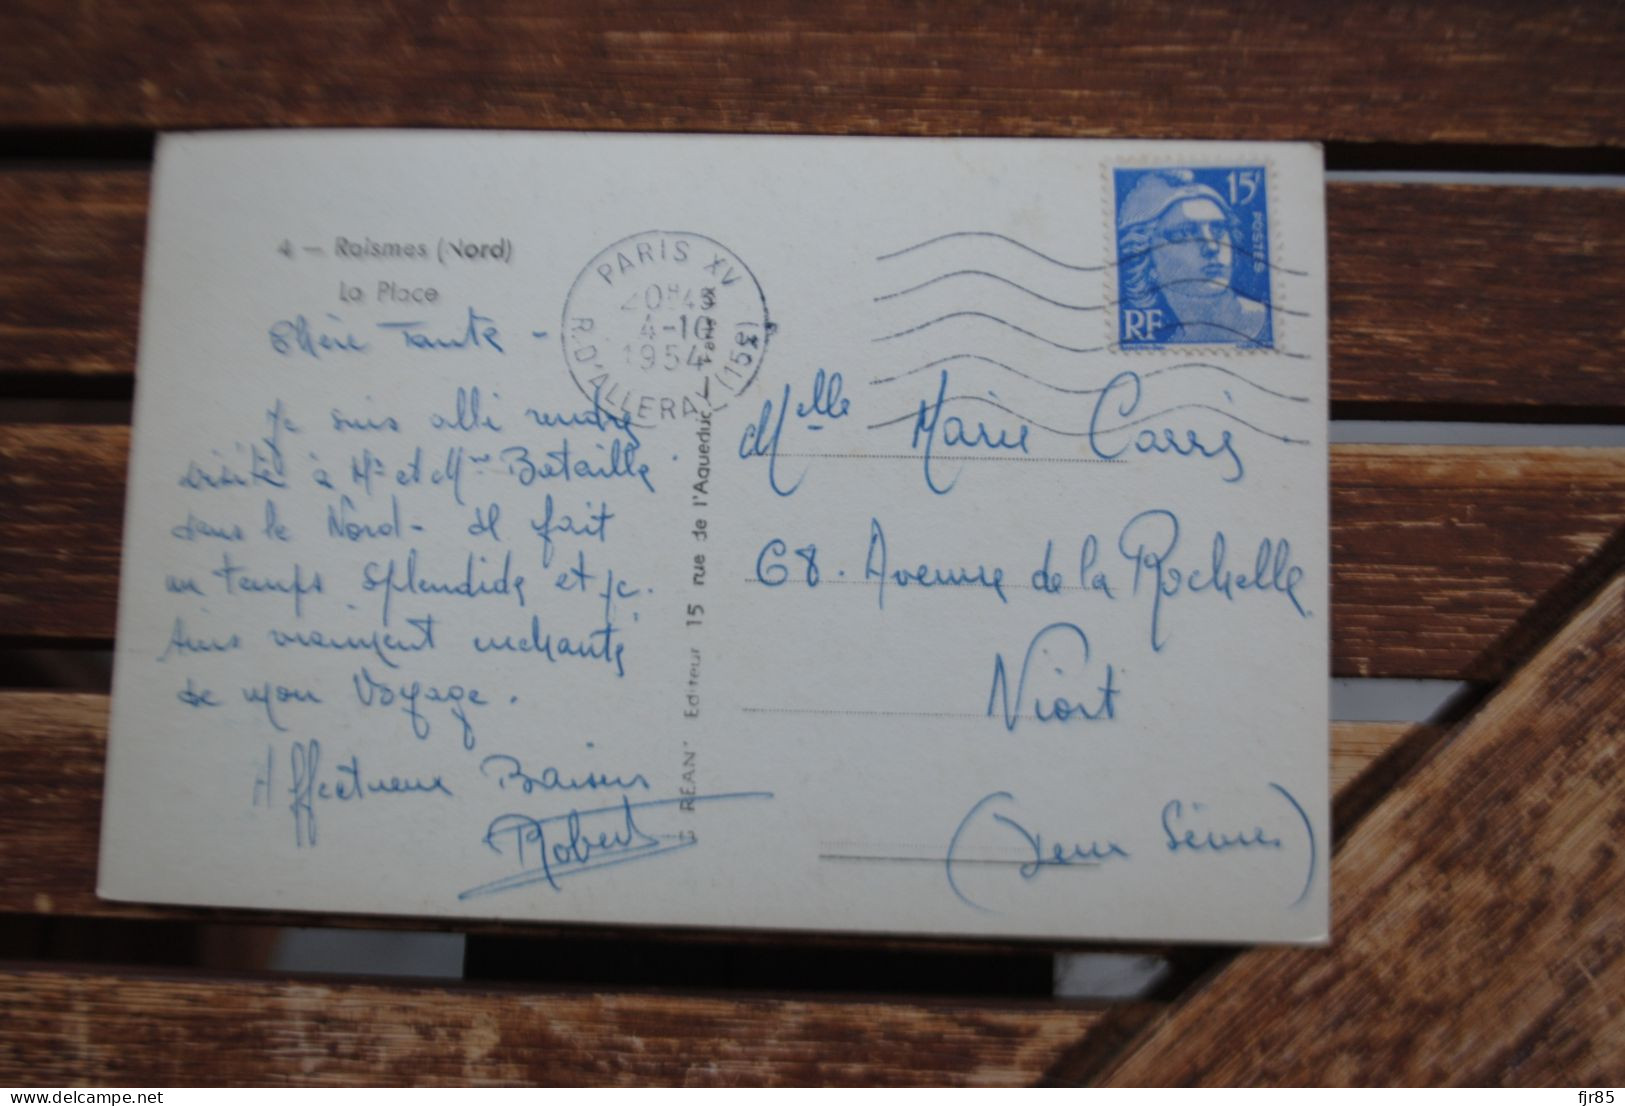 4 — Raismes (Nord)
La Place
Chère Tante -
Je suis allé rendre
visite à Mr et Mme Bataille.
dans le Nord - Il fait
un temps splendide et je
suis vraiment enchanté
de mon Voyage.
Affectueux Baisers
Robert
PARIS XV
20H45
4-10
1954
R. D'ALLERAY (15e)
REANT Editeur 15 rue de l'Aqueduc — Paris
15F
POSTES
RF
Melle Marie Carré
68. Avenue de la Rochelle
Niort
(Deux Sèvres)
delcampe.net
fjr85